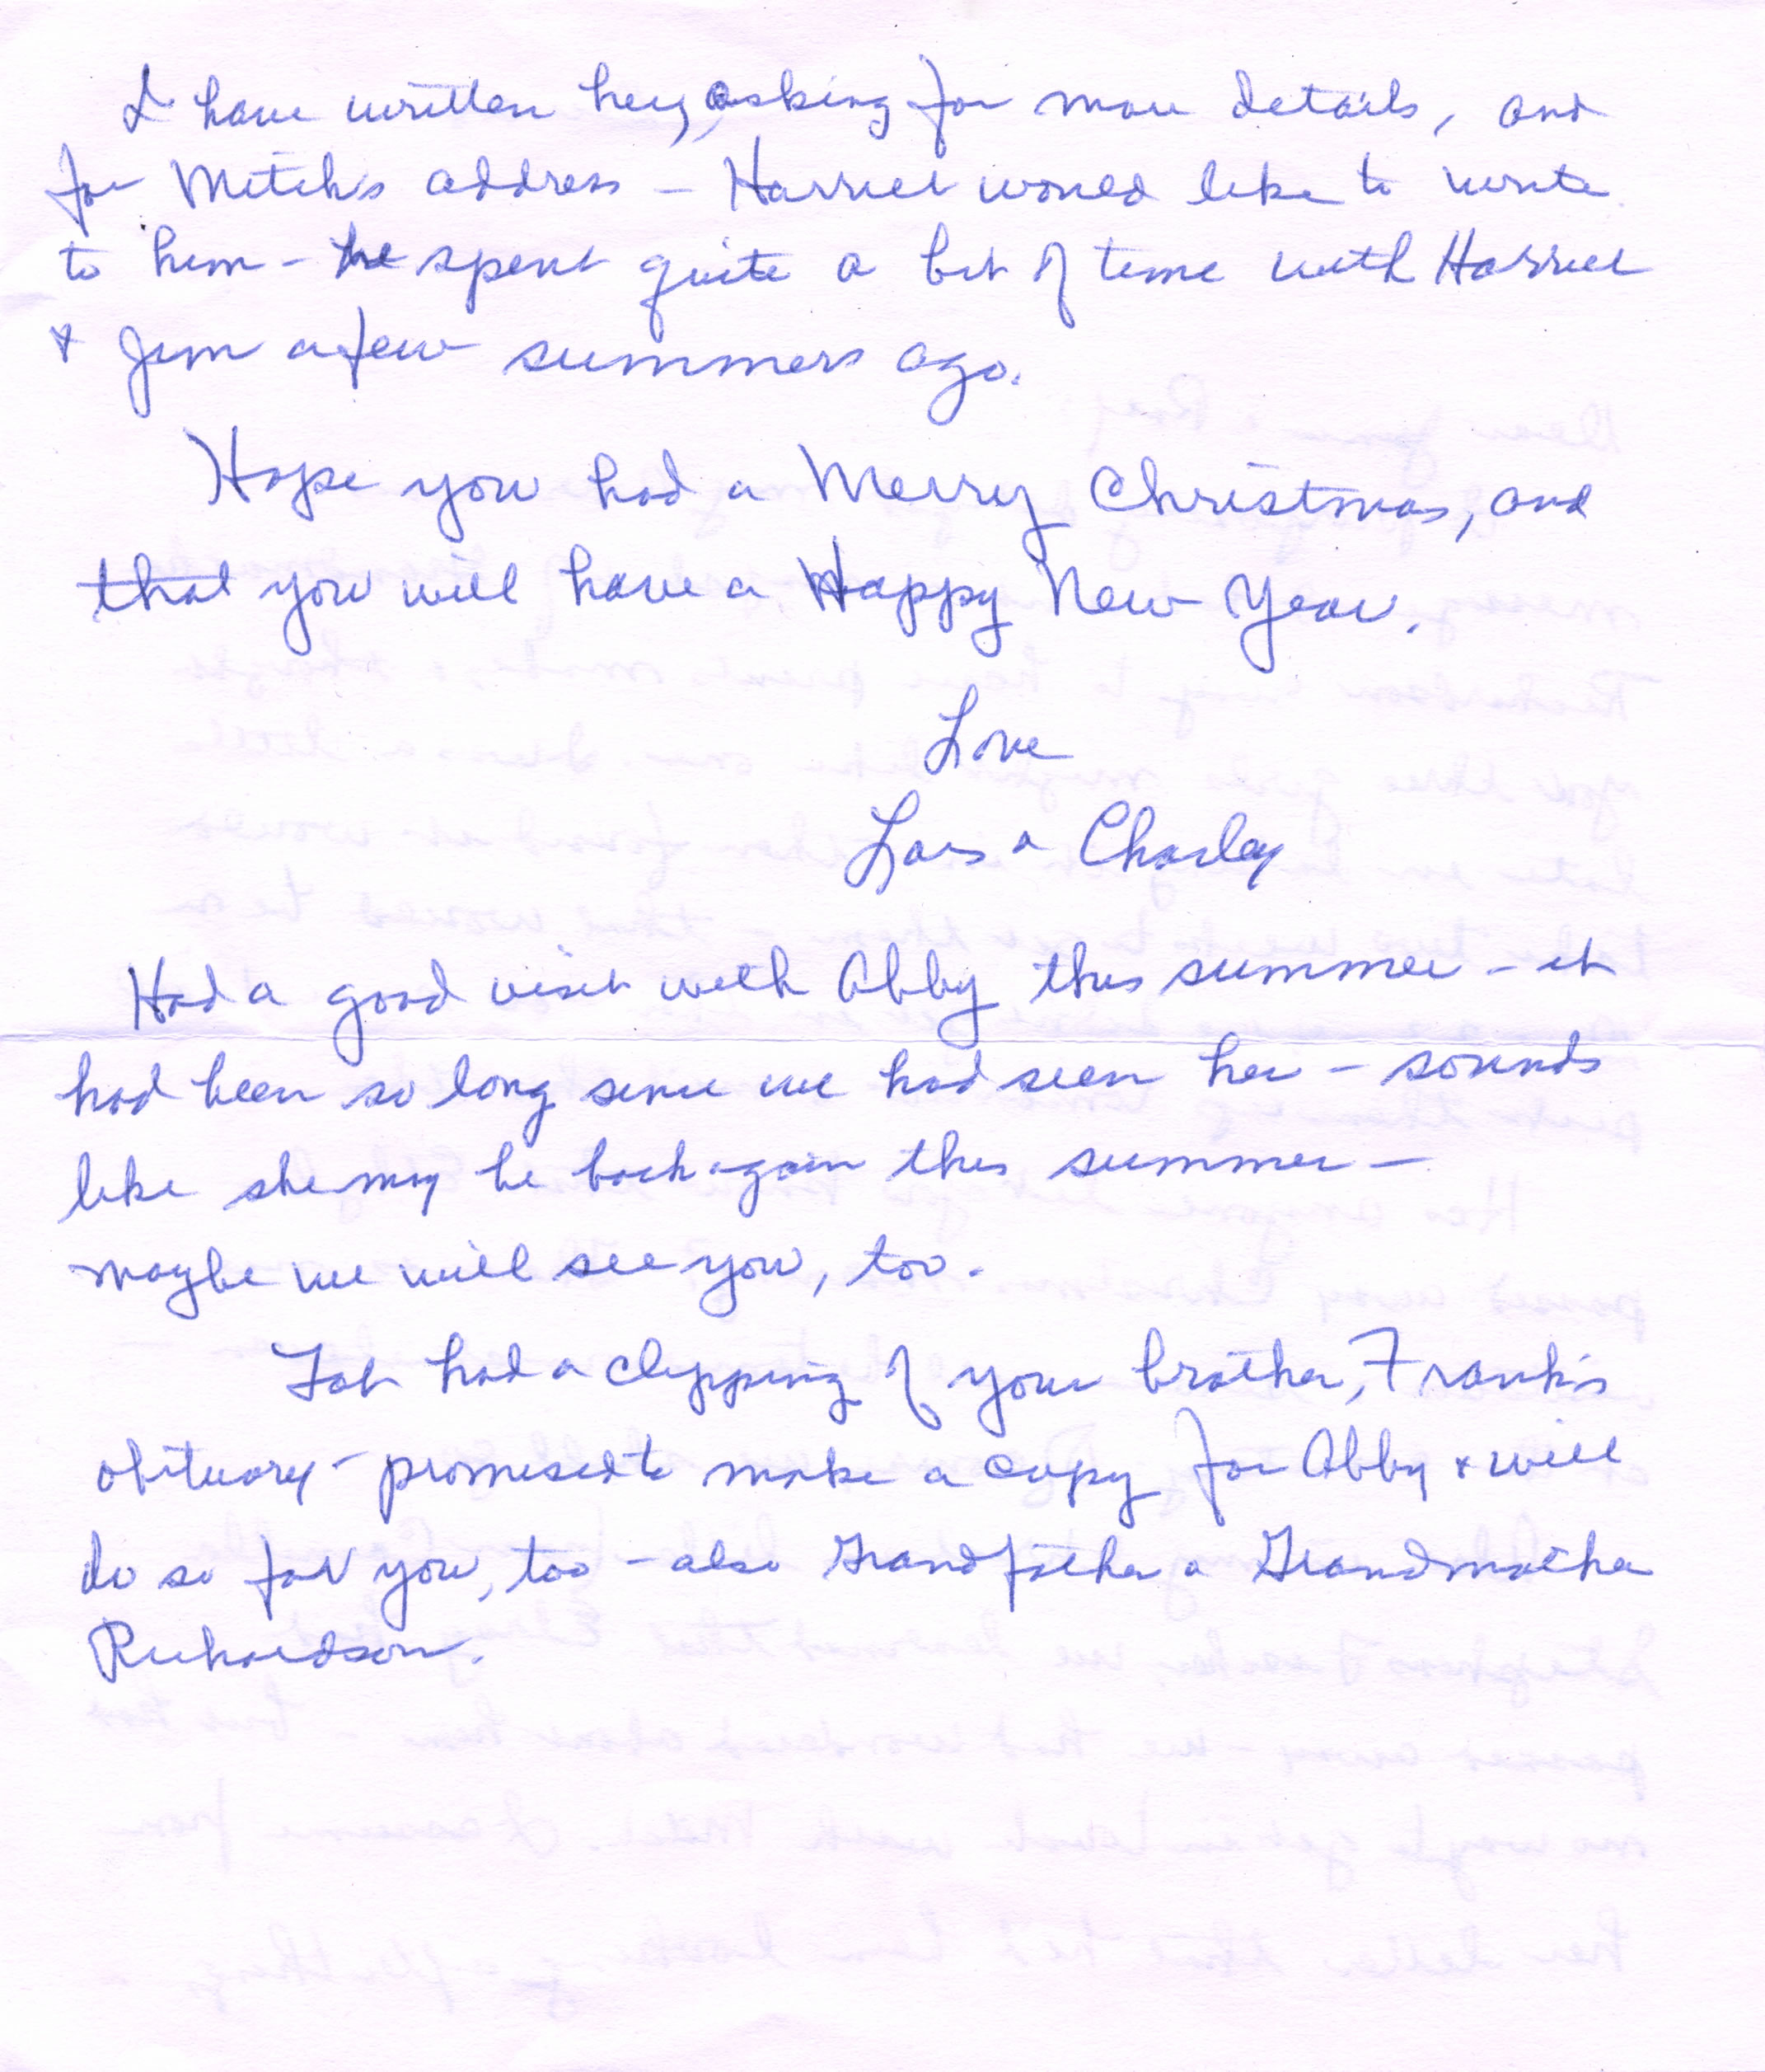 I have written her, asking for more details, and
for Mitch's address – Harriet would like to write
to him – he spent quite a bit of time with Harriet
& Jim a few summers ago.
Hope you had a Merry Christmas, and
that you will have a Happy New Year.
Love
Lois & Charley
Had a good visit with Abby this summer – it
had been so long since we had seen her – sounds
like she may be back again this summer –
maybe we will see you, too.
had a clipping of your brother, Frank's
obituary – promised to make a copy for Abby & will
do so for you, too – also Grandfather & Grandmother
Richardson.